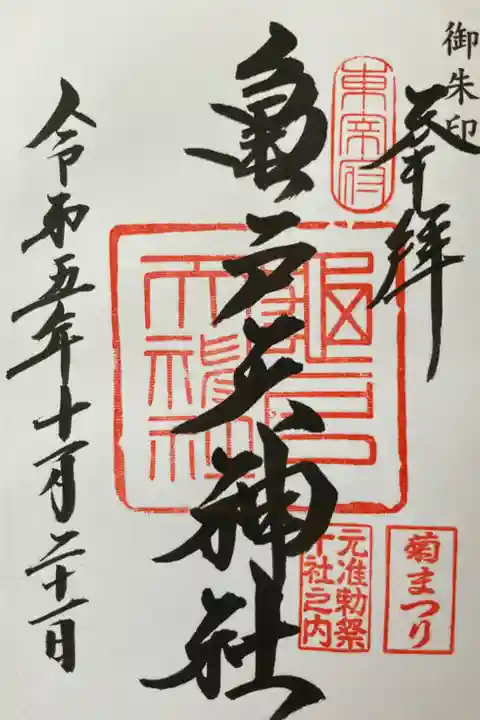 御朱印
奉拝
東宰府
亀戸天神社
亀戸天神社
菊まつり
元准勅祭
十社之内
令和五年十一月二十一日